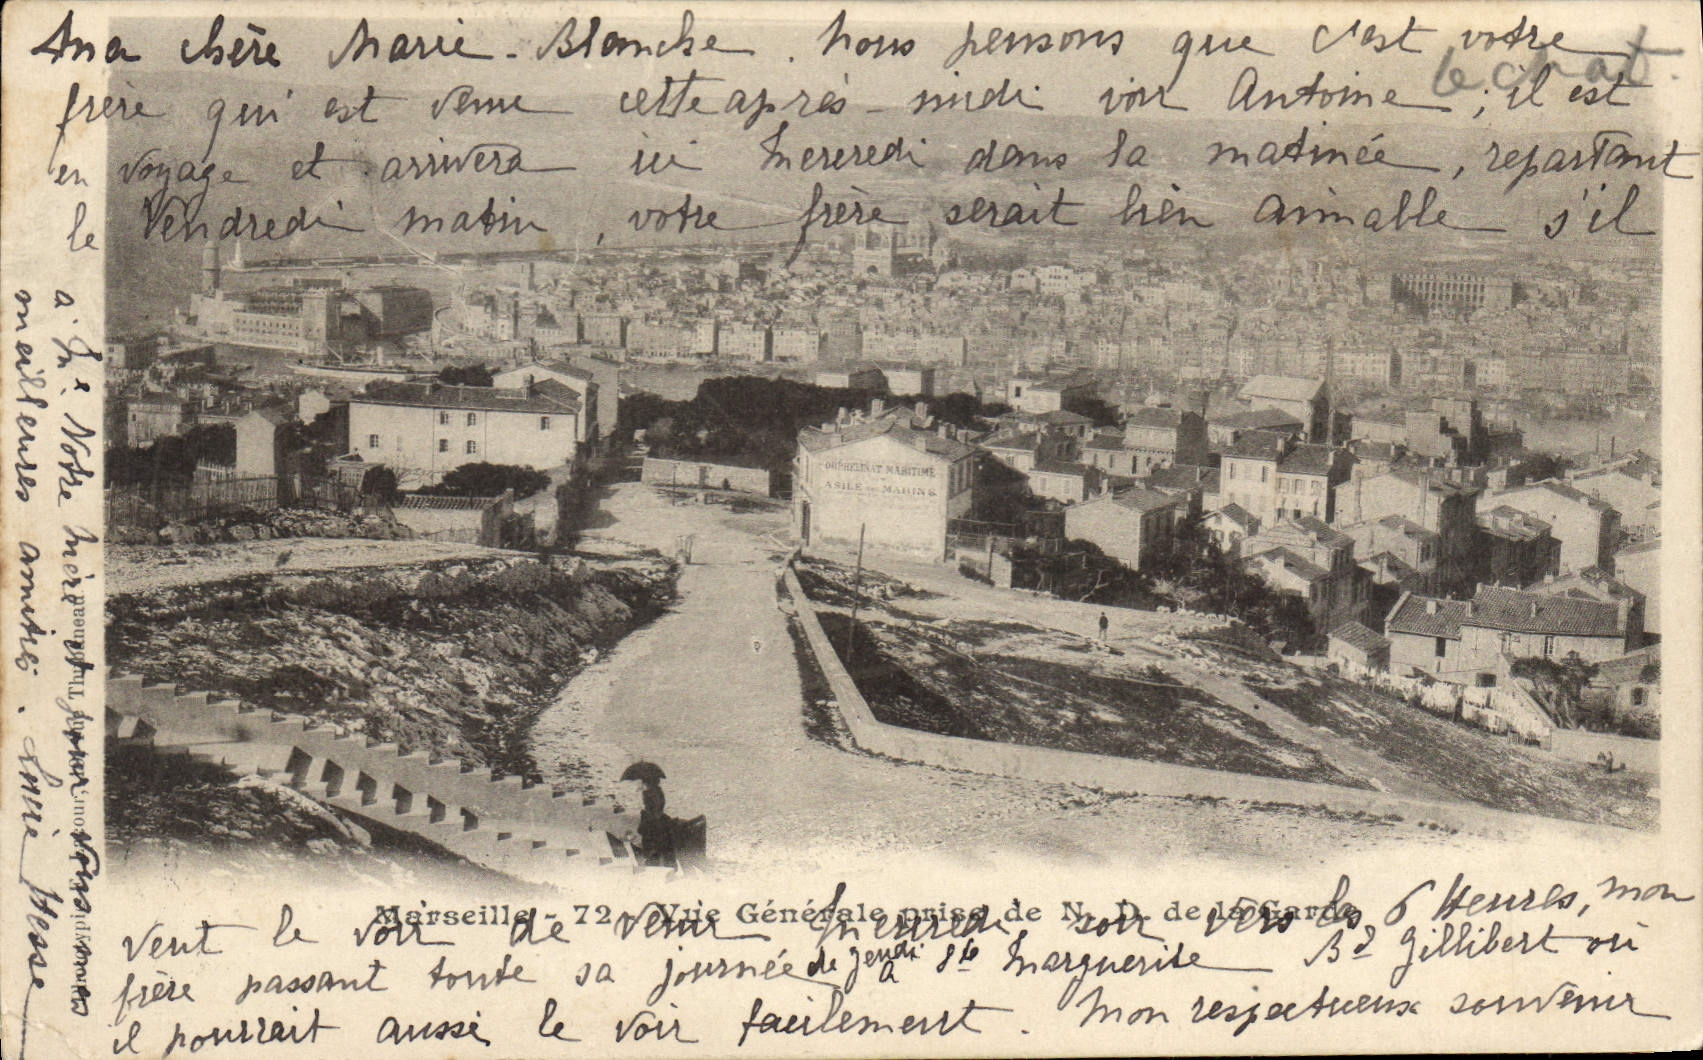 Ma chère Marie-Blanche. Nous pensons que c'est votre
le chat.
frère qui est venu cette après-midi voir Antoine ; il est
en voyage et arrivera ici Mercredi dans la matinée, repartant
le Vendredi matin, votre frère serait bien aimable s'il
ORPHELINAT MARITIME
ASILE DES MARINS
Marseille - 72 - Vue Générale prise de N. D. de la Garde
veut le voir de venir Mercredi soir vers les 6 Heures, mon
frère passant toute sa journée de jeudi à Ste Marguerite Bd Gillibert où
il pourrait aussi le voir facilement. Mon respectueux souvenir
à Me Votre mère et pour vous
meilleures amitiés.